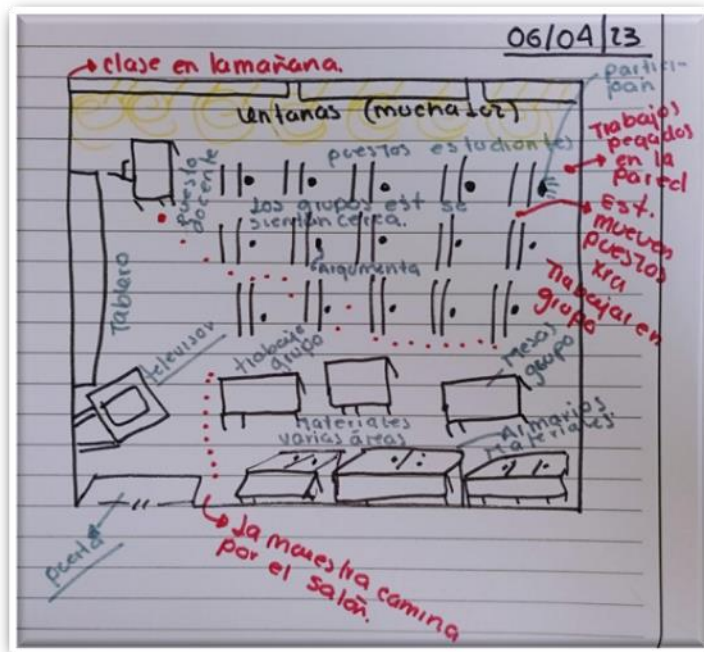 06/04/23
clase en la mañana.
partici-
pan
ventanas (mucha luz)
Trabajos
pegados
en la
pared
puestos estudiantes
puesto
docente
Los grupos est se
sientan cerca.
Est.
mueven
puestos
xra
Trabajar en
grupo
Argumenta
Tablero
televisor
trabajo
grupo
Mesas
grupo
Materiales
varias áreas
Armarios
Materiales.
puerta
La maestra camina
por el salón.